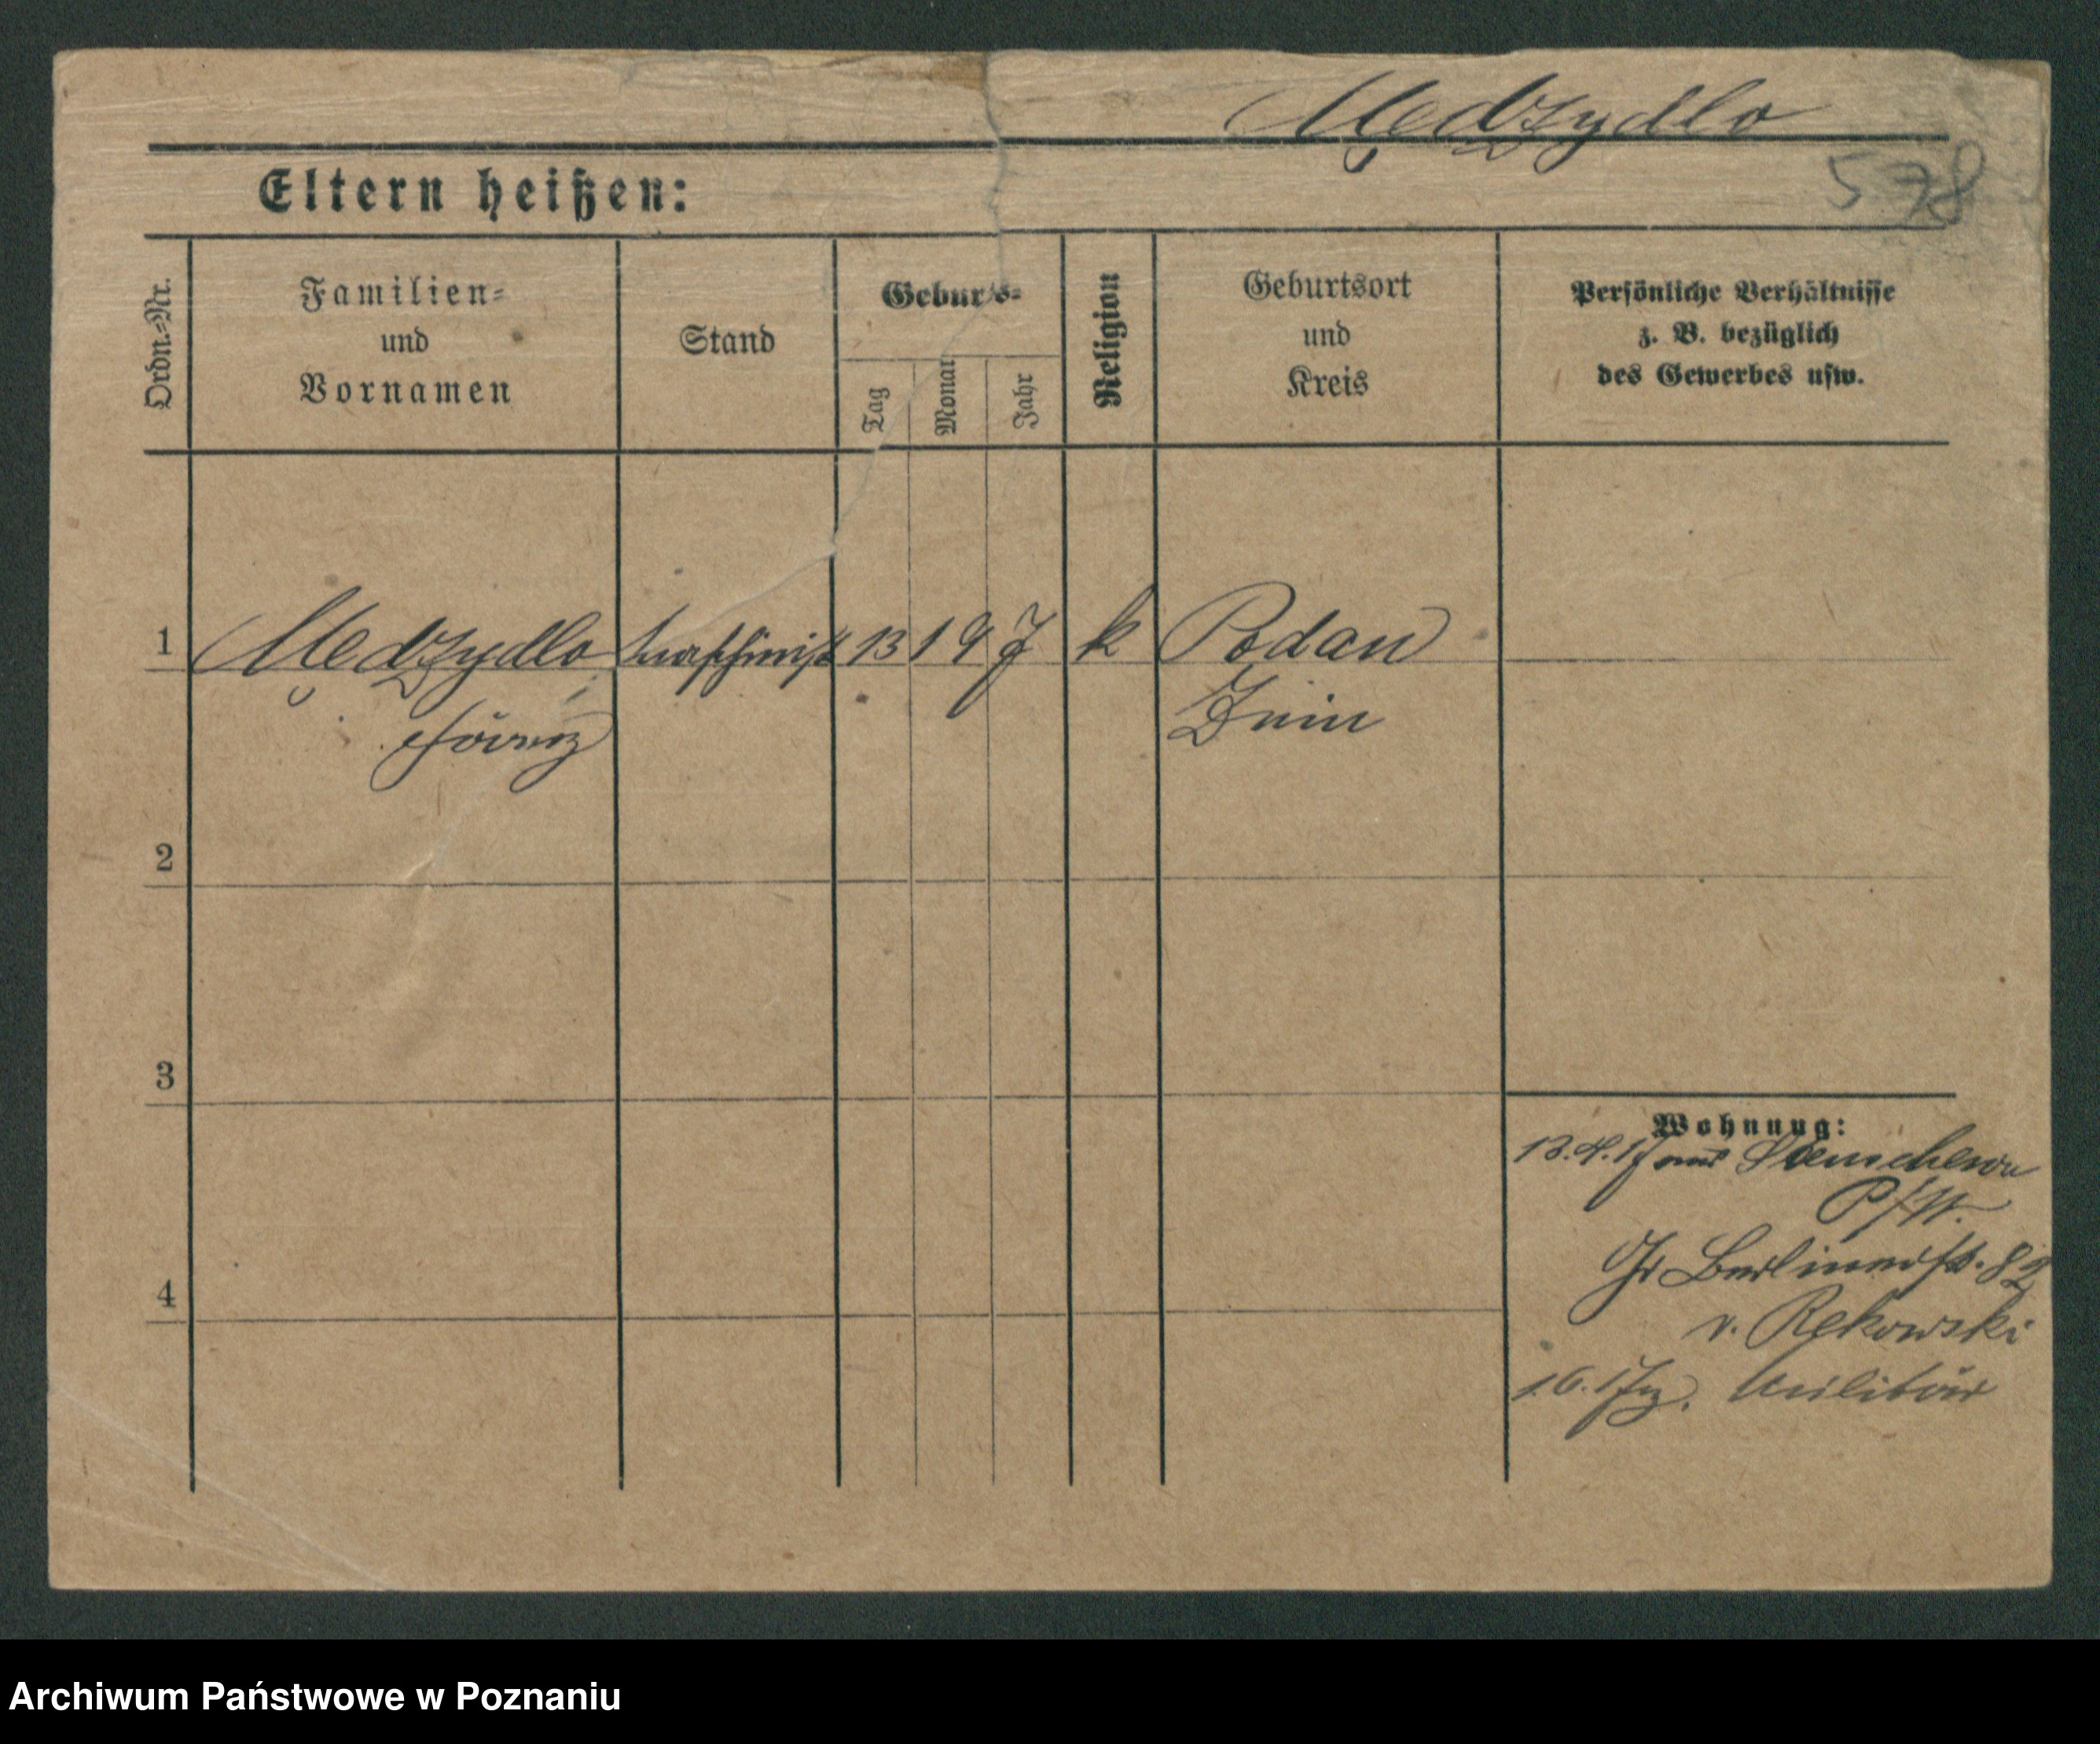 Medzydlo
578
Eltern heißen:
Ordn.-Nr.
Familien-
und
Vornamen
Stand
Geburts-
Tag
Monat
Jahr
Religion
Geburtsort
und
Kreis
Persönliche Verhältnisse
z. B. bezüglich
des Gewerbes usw.
1 Medzydlo Maschinist 13 1 97 k Podan
Franz Znin
2
3
4
Wohnung:
13.4.17 aus Stenschewo
P/W.
Gr Berlinerstr. 82
v. Rekowski
Militär
Archiwum Państwowe w Poznaniu